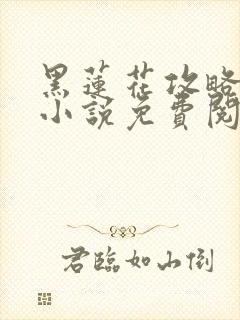 黑蓮花攻略
小說免費閱
君臨如山倒